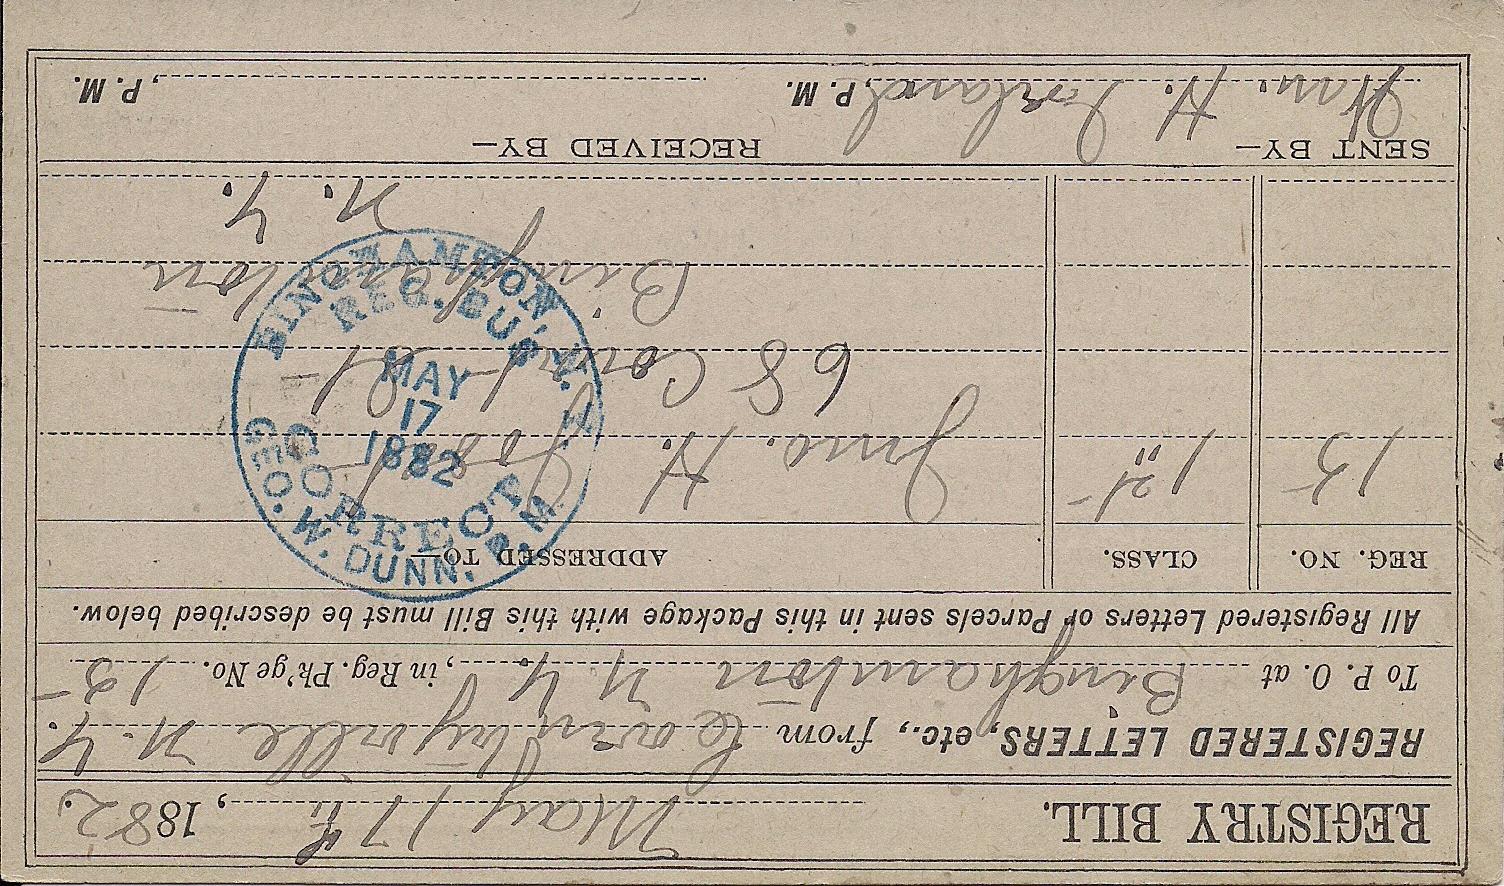 REGISTRY BILL. May 17th, 1882.
REGISTERED LETTERS, etc., from Coventryville N.Y.
To P. O. at Binghamton N.Y., in Reg. Pk'ge No. 15
All Registered Letters or Parcels sent in this Package with this Bill must be described below.
REG. NO. CLASS. ADDRESSED TO—
15 1st Jno. H.
68 Court St
Binghamton
N. Y.
SENT BY— RECEIVED BY—
Wm. H. , P. M. , P. M.
BINGHAMTON, N. Y.
REG. BUS.
MAY
17
1882
CORRECT
GEO. W. DUNN. P. M.